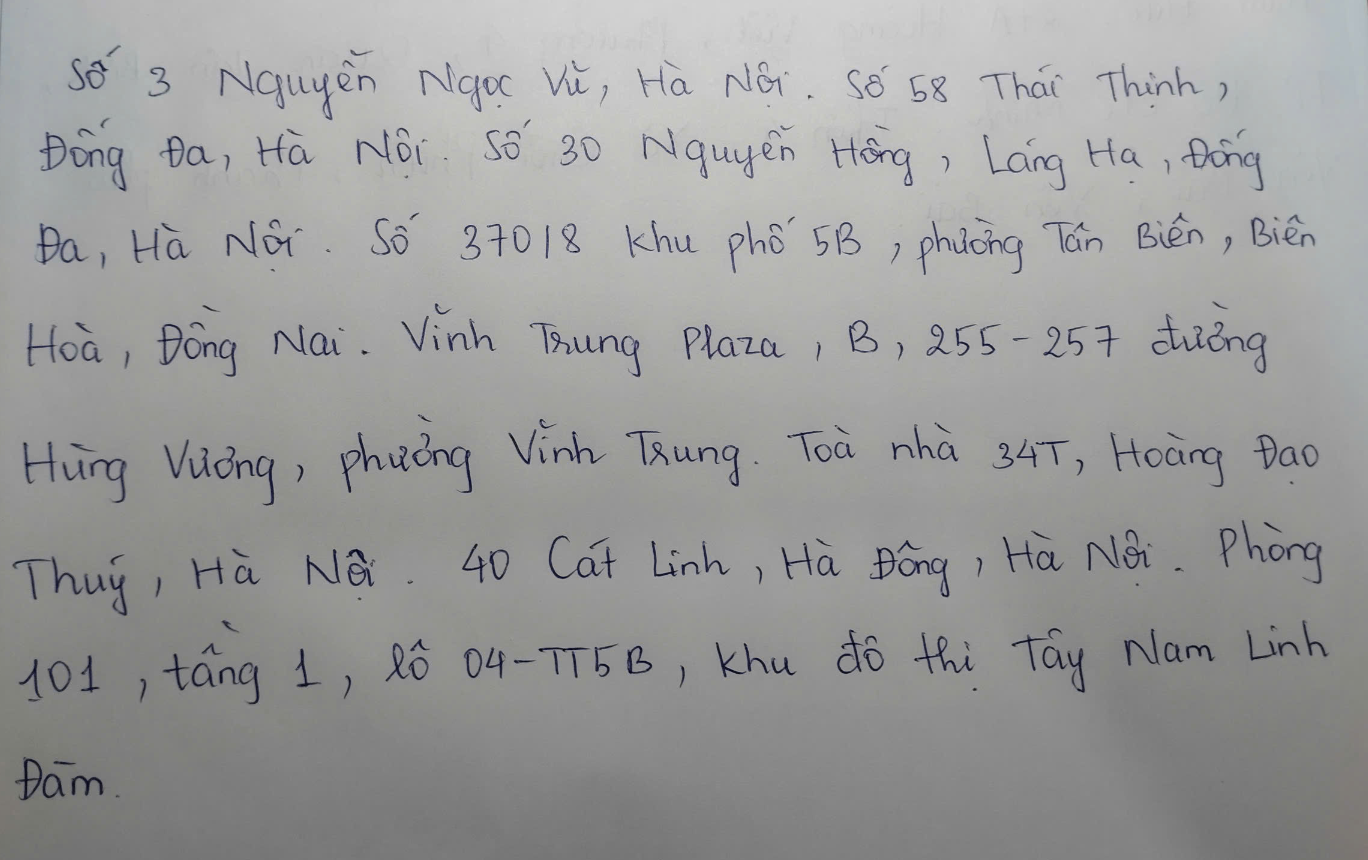 Số 3 Nguyễn Ngọc Vũ, Hà Nội. Số 58 Thái Thịnh,
Đống Đa, Hà Nội. Số 30 Nguyên Hồng, Láng Hạ, Đống
Đa, Hà Nội. Số 370/8 Khu phố 5B, phường Tân Biên, Biên
Hoà, Đồng Nai. Vĩnh Trung Plaza, B, 255-257 đường
Hùng Vương, phường Vĩnh Trung. Toà nhà 34T, Hoàng Đạo
Thuý, Hà Nội. 40 Cát Linh, Hà Đông, Hà Nội. Phòng
101, tầng 1, lô 04-TT5B, Khu đô thị Tây Nam Linh
Đàm.